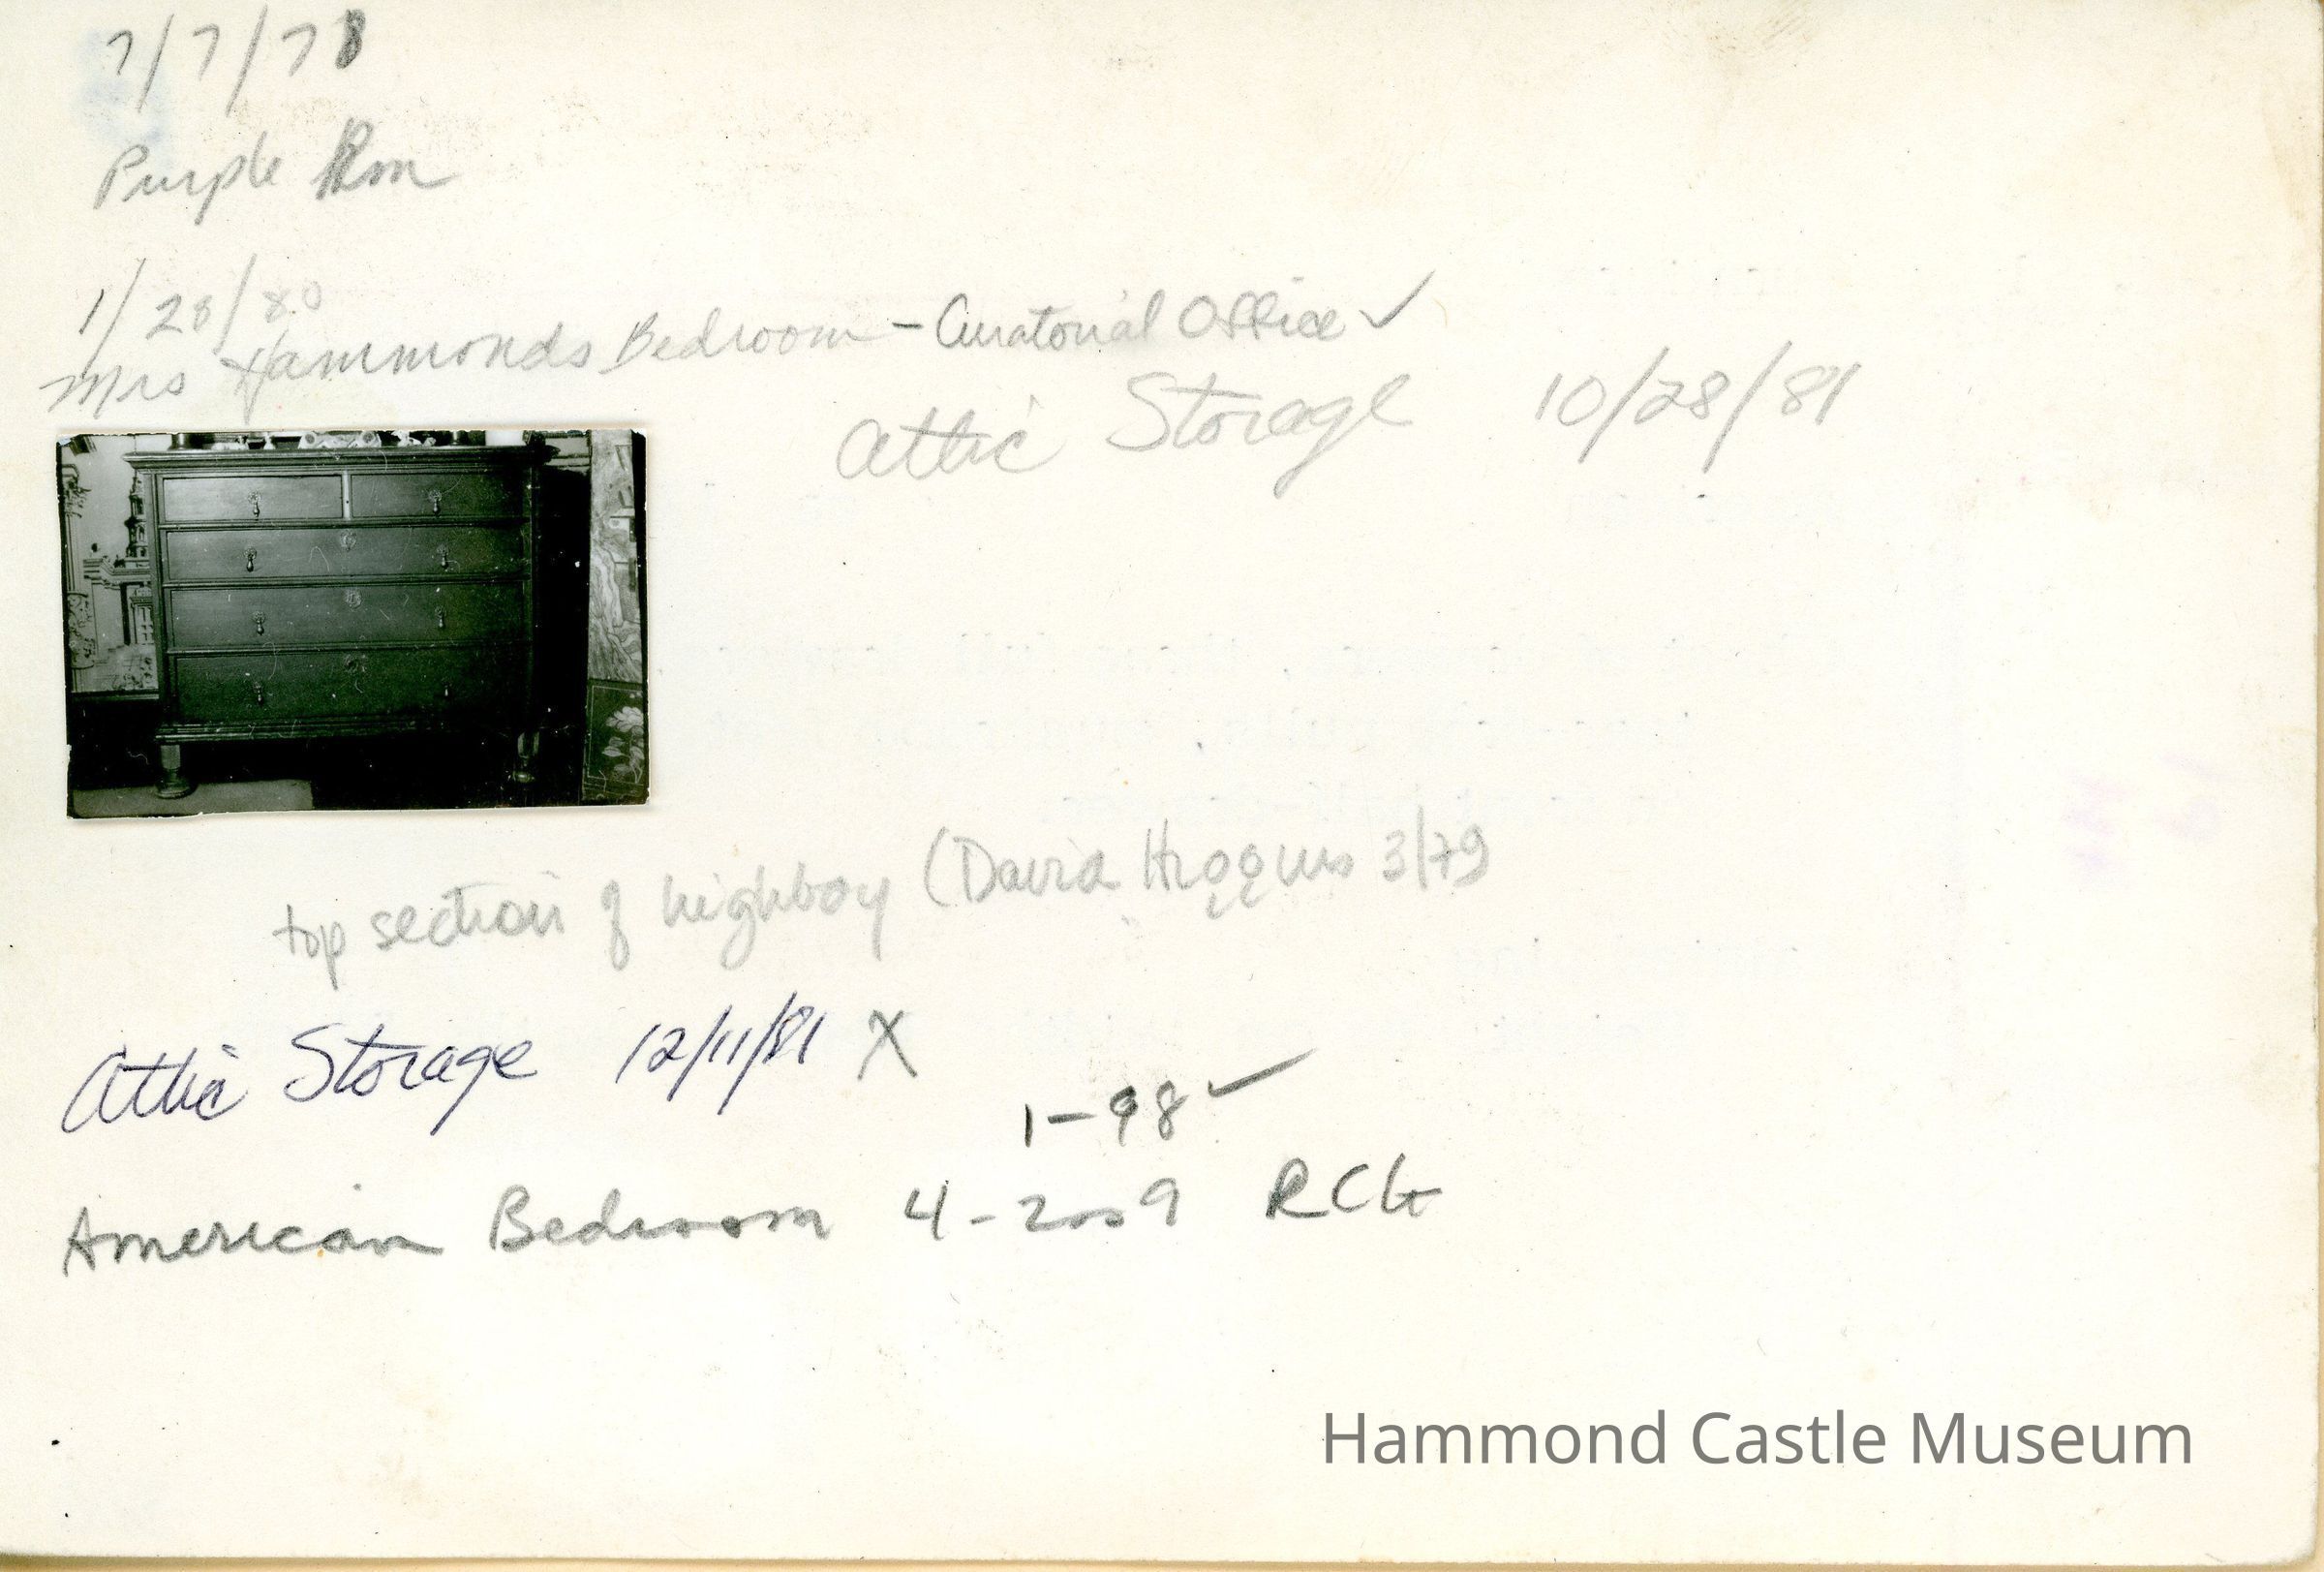 7/7/78
Purple Rm
1/28/80
Mrs Hammonds Bedroom - Curatorial Office ✓
Attic Storage 10/28/81
top section of highboy (David Higgins 3/79
Attic Storage 12/11/81 X
1-98 ✓
American Bedroom 4-2009 RCG
Hammond Castle Museum